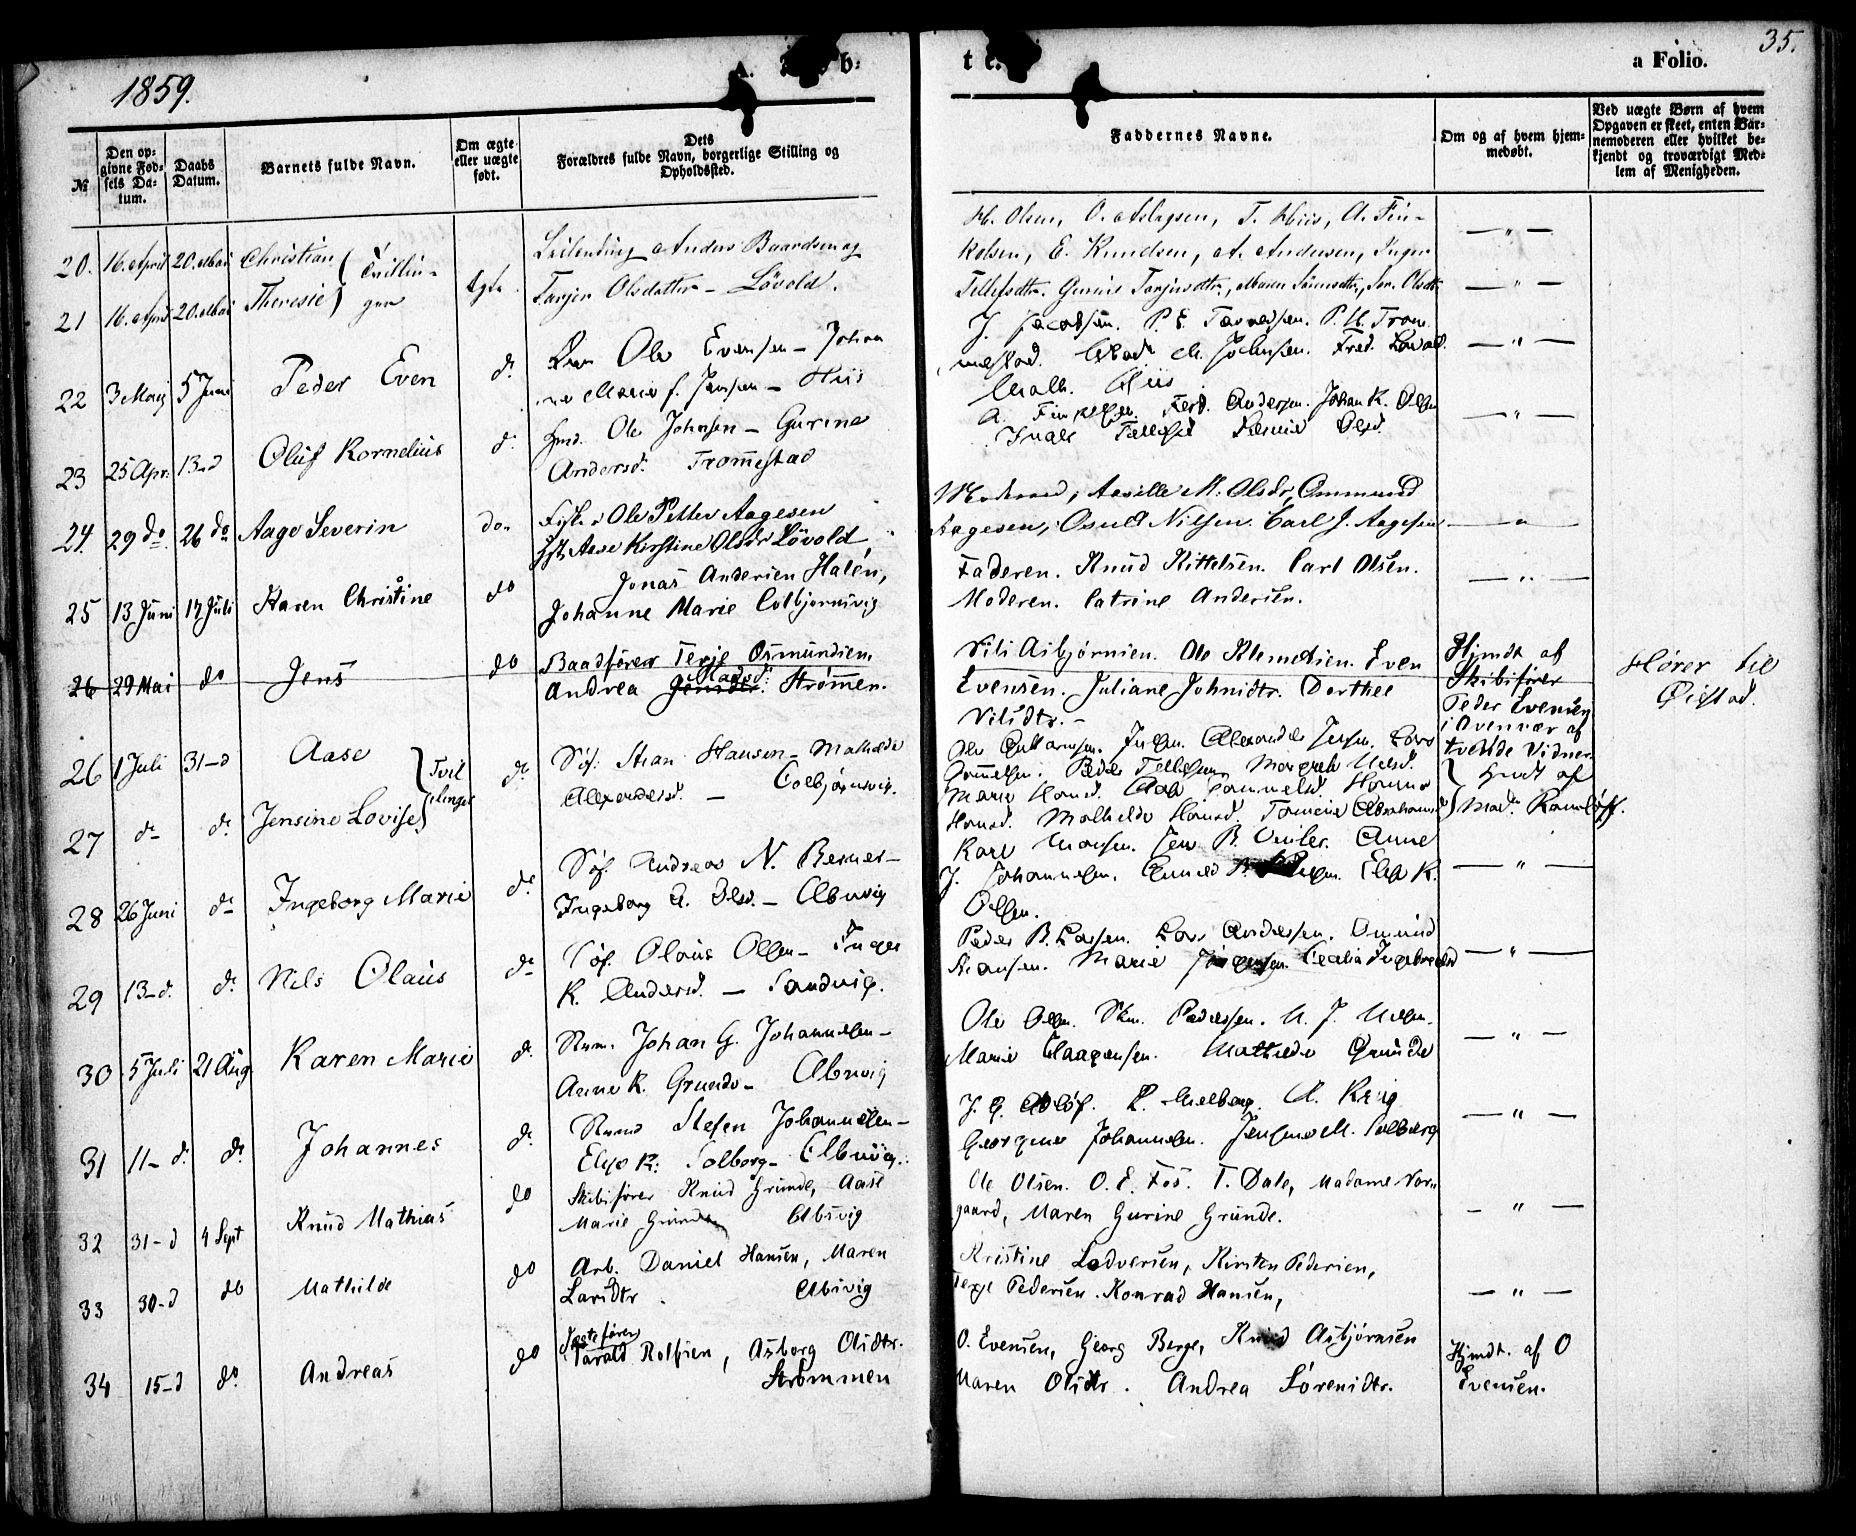 1859.
b:
t
a Folio.
35.
№
Den op-
givne Fød-
sels Da-
tum.
Daabs
Datum.
Barnets fulde Navn.
Om ægte
eller uægte
født.
Dets
Forældres fulde Navn, borgerlige Stilling og
Opholdssted.
Faddernes Navne.
Om og af hvem hjem-
medøbt.
Ved uægte Børn af hvem
Opgaven er skeet, enten Bar-
nemoderen eller hvilket be-
kjendt og troværdigt Med-
lem af Menigheden.
20. 16. April 20. Mai Christian Tvillin-
Anders Baardsen og
H. Olsen, O. Aslagsen, T. Hiis, A. Fin-
kelsen, E. Knudsen, A. Andersen, Inger
— " —
21 16. April 20. Mai Theresie ger
Ægte
Tarjer Olsdatter – Løvold.
Tellefsdtr. Gunild Tarjusdtr.,
— " —
22 3 Maij 5 Juni Peder Even
d.
Ole Evensen – Johan
ne Marie f. Jensen – Hiis
J. Jacobsen. P. E. P. H. Trom
mestad. M. Johnsen. Fred. Løvold.
Hiis
— " —
23 25 Apr. 13–d Oluf Kornelius
d.
Gmd. Ole Johnsen – Gurine
Andersd. Tromestad
A. Finkelsen. Ferd. Andersen. Johan K. Olsen
Inger Tellefsd Olsd.
— " —
24. 29 do. 26 do Aage Severin
do.
Fisker Ole Petter Aagesen
Aase Kirstine Olsdr Løvold
M. Olsdr, Ommund
Aagesen, Osuld Nilsen. Carl J. Aagesen
— " —
25 13 Juni 17 Juli Karen Christine
do
Jonas Andersen Halén,
Johanne Marie Colbjørnsvig
Faderen. Knud Kittelsen. Carl Olsen.
Moderen. Catrine Andersen.
— " —
26 29 Mai do Jens
do
Baadfører Terje Osmundsen
Andrea Madsd: Strømmen.
Nils Asbjørnsen. Ole Klemetsen. Even
Evensen. Juliane Johnsdtr. Dorthee
Nilsdtr. –
Hjmdt af
Skibsfører
Peder Evensen
i Overvær af
tvende Vidner
Hører til
Øistad.
26 1 Juli 31–d Aase
Tvil
linger
d.
Søf: Hans Hansen – Mathilde
Alexandersd. – Colbjørnsvig.
Ole Guttormsen. Alexander Jensen. Lars
Gommelsen. Peder Tellefsen. Margrete Nilsd.
Marie Hansd. Gommelsd. Hanna
27 d– d. Jensine Lovise
Hansd. Mathilde Hansd. Tomine Abrahamsd
Hmdt af
Mad.
28 26 Juni d– Ingeborg Marie
d.
Søf. Andreas N. Berner –
Ingeborg A. Olsd. – Albuvig
Karl Hansen. Jens B. Anne
J. Johannesen. Gunild Else K.
Olsen.
— " —
29 13–d. d. Nils Olaus
d–
Søf. Olaus Olsen – Inger
K. Andersd. – Sandvig.
Peder B. Larsen. Lars Andersen. Omund
Hansen. Marie Jörgensen Cecilia Ingebretsd
— " —
30 5 Juli 21 Aug Karen Marie
d.
Johan G. Johannesen –
Anne K. Grunde – Albuvig
Ole Olsen. Pedersen. N. J. Nilsen.
Marie Claagensen. Mathilde Grunde
— " —
31 11– d. d. Johannes
d.
Stefen Johannesen –
Else K. Solberg – Albuvig.
J. G. Adløf.
Georgine Johannesen. Jensine M. Solberg
— " —
32 31–d 4 Sept Knud Mathias
do
Skibsfører Knud Grunde, Aase
Marie Grunde Albsvig
Ole Olsen. O. E. Fos. T. Dale, Madame Vorn
gaard, Maren Gurine Grunde.
— " —
33 30–d do Mathilde
do
Arb. Daniel Hansen, Maren
Larsdtr. Albsvig
Kristine Ledversen, Kirsten Pedersen,
Terje Pedersen. Konrad Hansen,
— " —
34 15–d do Andreas
do
Tarald Rolfsen, Asborg Olsdtr.
Strømmen
O. Evensen, Georg Berge, Knud Asbjørnsen
Maren Olsdtr. Andrea Sørensdtr.
Hjmdt. af O
Evensen.